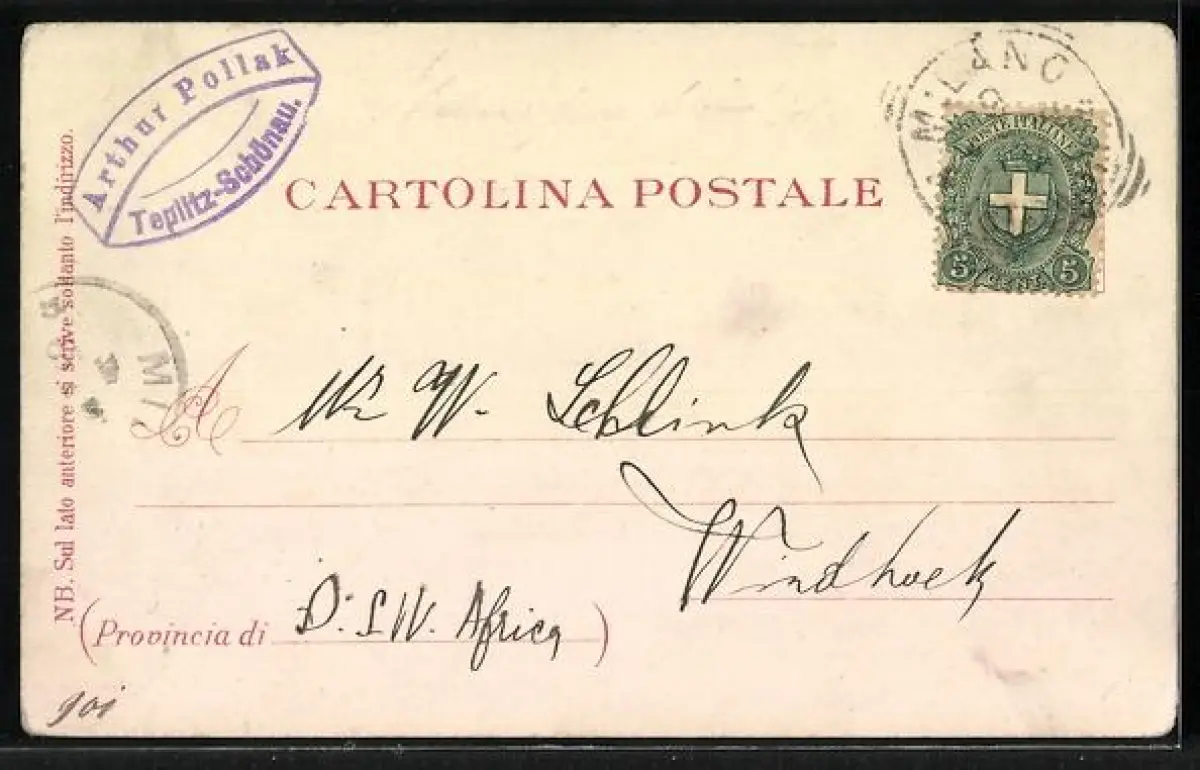 Arthur Pollak
Teplitz-Schönau.
MILANO
POSTE ITALIANE
5 CENT. 5
CARTOLINA POSTALE
NB. Sul lato anteriore si scrive soltanto l'indirizzo.
MIL
A Mr W. Schlink
Windhoek
(Provincia di D. S W. Africa)